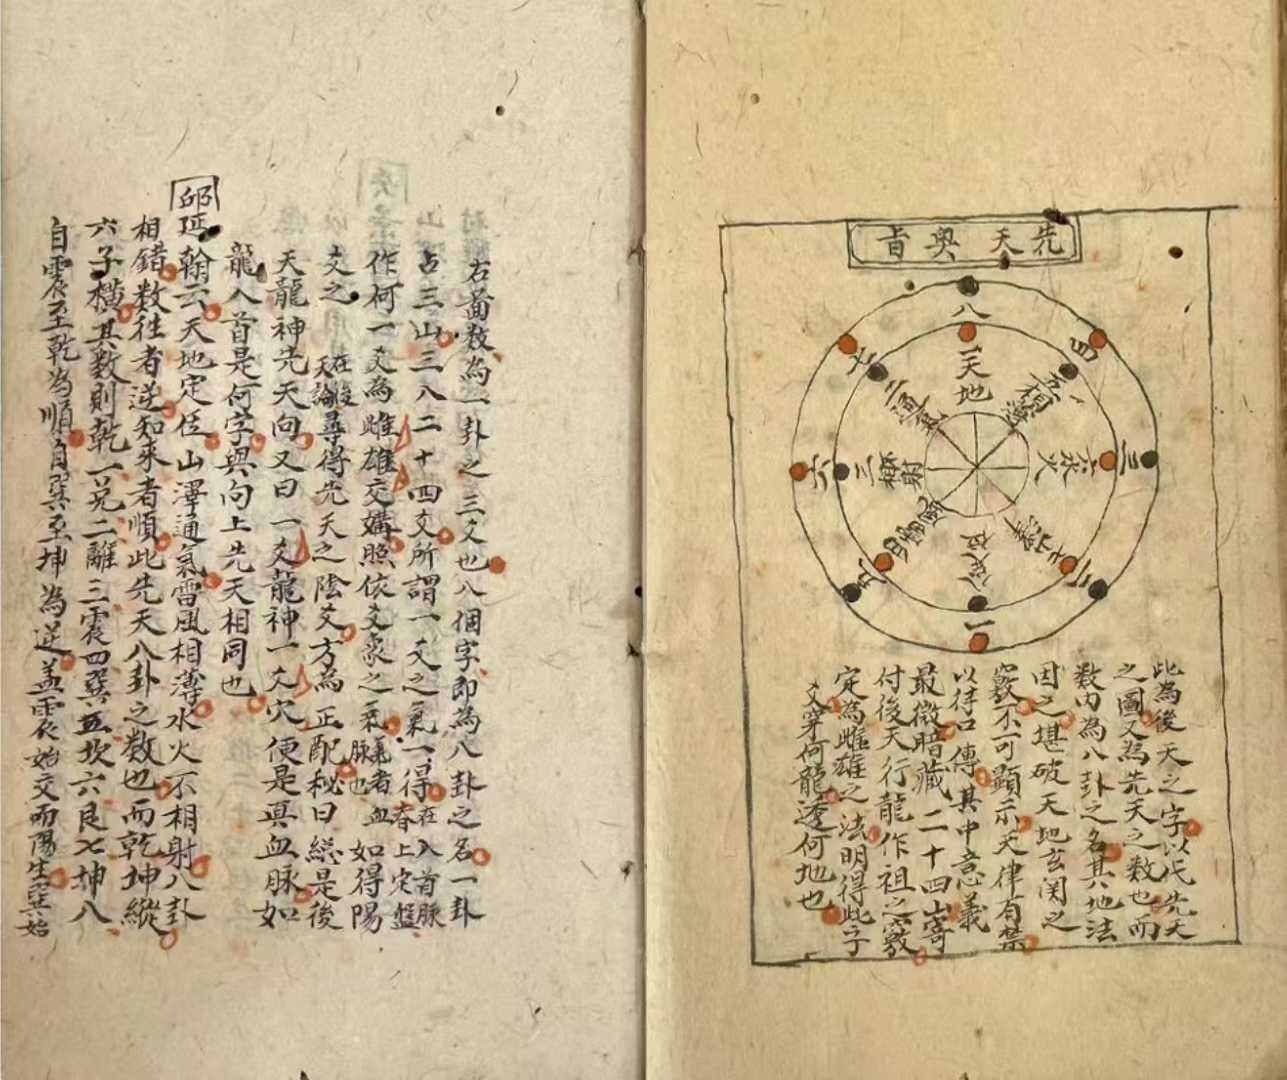 先天奧旨
八
四
三
二
一
九
六
七
一天地
五相薄
六水火
七山澤
八定位
四雷風
三射
二通氣
此為後天之字以代先天
之圖又為先天之数也而
数内為八卦之名其地法
因之堪破天地玄関之
竅不可顕示天律有禁
以待口傳其中意義
最微暗藏二十四山寄
付後天行龍作祖之竅
定為雌雄之法明得此字
爻穿何龍透何地也
右圖数為一卦之三爻也八個字即為八卦之名一卦
占三山三八二十四爻所謂一爻之氣一得在入首脉上定盤
作何一爻為雌雄交媾照依爻象之氣者血脉也如得陽
爻之在後天論尋得先天之陰爻方為正配秘曰総是後
天龍神先天向又曰一爻龍神一爻穴便是真血脉如
龍入首是何字與向上先天相同也
邱延翰云天地定位山澤通氣雷風相薄水火不相射八卦
相錯数往者逆知来者順此先天八卦之数也而乾坤縱
六子橫其数則乾一兑二離三震四巽五坎六艮七坤八
自震至乾為順自巽至坤為逆盖震始交而陽生巽始